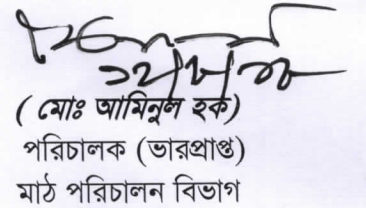 ( মোঃ আমিনুল হক)
পরিচালক (ভারপ্রাপ্ত)
মাঠ পরিচালন বিভাগ